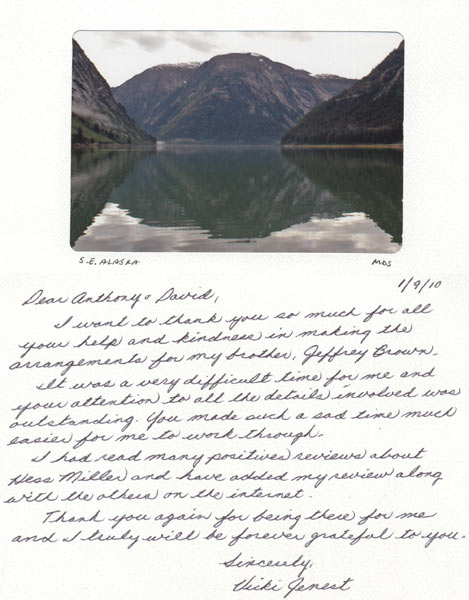 S.E. ALASKA MDS
1/9/10
Dear Anthony & David,
I want to thank you so much for all
your help and kindness in making the
arrangements for my brother, Jeffrey Brown.
It was a very difficult time for me and
your attention to all the details involved was
outstanding. You made such a sad time much
easier for me to work through.
I had read many positives reviews about
Hess Miller and have added my review along
with the others on the internet.
Thank you again for being there for me
and I truly will be forever grateful to you.
Sincerely,
Vicki Jenest